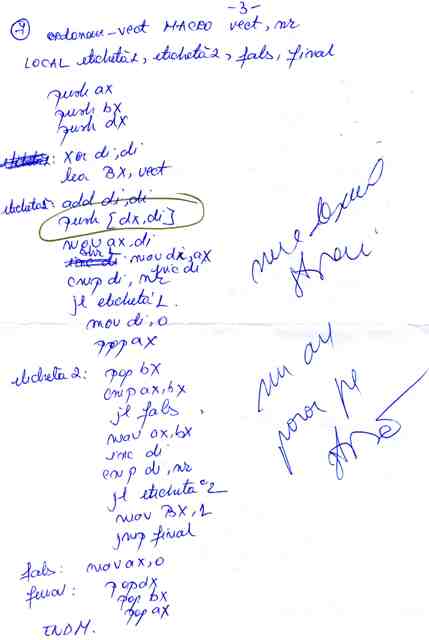 -3-
7 ordonare-vect MACRO vect, nr
LOCAL etichetă1, etichetă2, fals, final
push ax
push bx
push dx
: xor di,di
lea BX, vect
etichetă1: add di,di
push [dx,di]
mov ax,di
mov di,ax
inc di
cmp di, nr
jl etichetă1
mov di,0
pop ax
etichetă2: pop bx
cmp ax,bx
jl fals
mov ax,bx
inc di
cmp di,nr
jl etichetă2
mov BX,1
jmp final
fals: mov ax,0
final: pop dx
pop bx
pop ax
ENDM.
nu e
nu au
pe